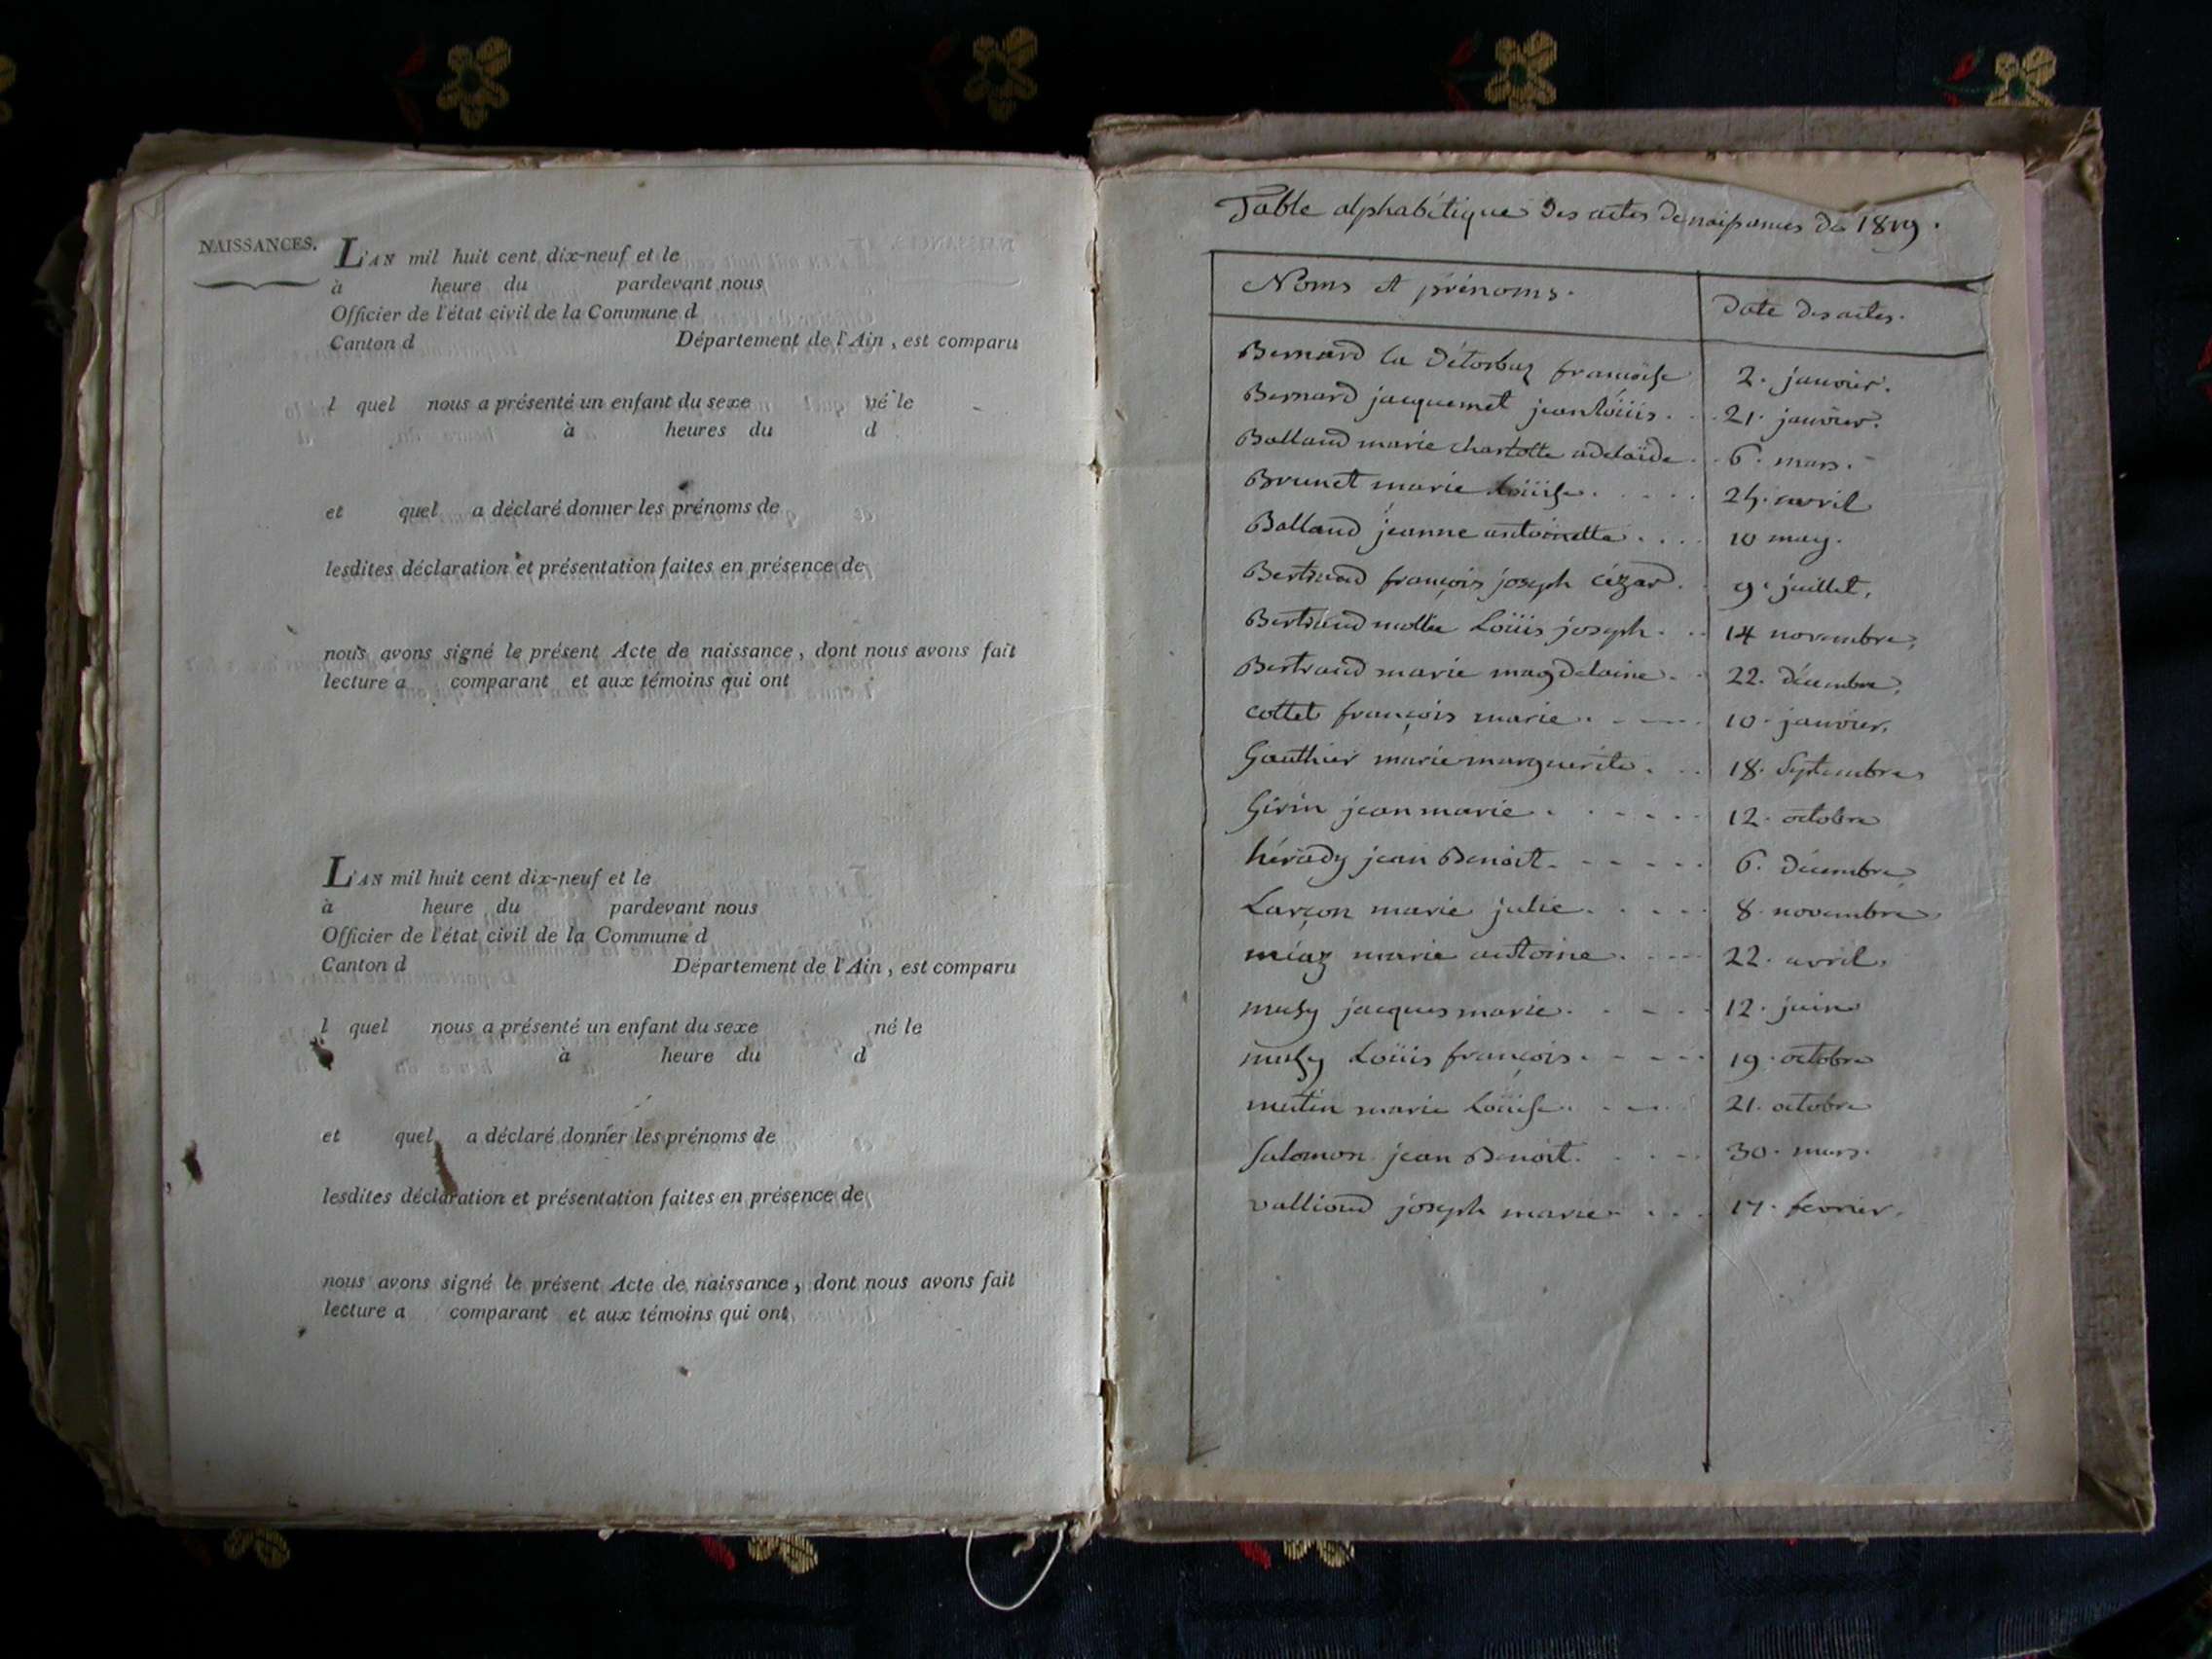 NAISSANCES.
L'AN mil huit cent dix-neuf et le
à heure du pardevant nous
Officier de l'état civil de la Commune d
Canton d Département de l'Ain, est comparu
l quel nous a présenté un enfant du sexe né le
à heures du d
et quel a déclaré donner les prénoms de
lesdites déclaration et présentation faites en présence de
nous avons signé le présent Acte de naissance, dont nous avons fait
lecture a comparant et aux témoins qui ont
L'AN mil huit cent dix-neuf et le
à heure du pardevant nous
Officier de l'état civil de la Commune d
Canton d Département de l'Ain, est comparu
l quel nous a présenté un enfant du sexe né le
à heure du d
et quel a déclaré donner les prénoms de
lesdites déclaration et présentation faites en présence de
nous avons signé le présent Acte de naissance, dont nous avons fait
lecture a comparant et aux témoins qui ont
Table alphabétique des actes de naissances de 1819.
Noms et prénoms. Date des actes.
Bernard la françoise 2. janvier.
Bernard jacquemet jean loüis. 21. janvier.
Balland marie charlotte adelaïde 6. mars.
Brunet marie Loüise. avril
Balland jeanne antoinette. 10 may.
Bertrand françois joseph cézar. 9. juillet.
Bertrand Loüis joseph. 14 novembre.
Bertrand marie magdelaine. 22. décembre.
cottet françois marie. 10. janvier.
Gauthier marie marguerite. 18. Septembre
Girin jean marie. 12. octobre
hérody jean Benoit. 6. décembre
Larçon marie julie. 8. novembre
miaz marie antoine. 22. avril.
musy jacques marie. 12. juin
musy Loüis françois. 19. octobre
mutin marie Loüise. 21. octobre
Salomon jean Benoit. 30. mars.
valliond joseph marie. 17. fevrier.